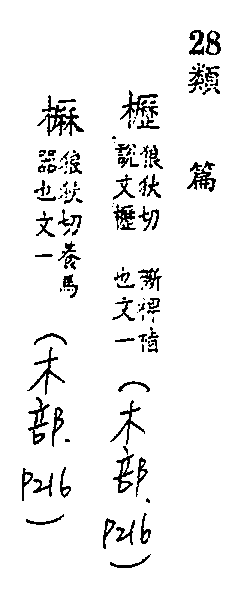 28類篇
櫪狼狄切說文櫪斯椑指也文一（木部.P216）
狼狄切養馬器也文一（木部.P216）